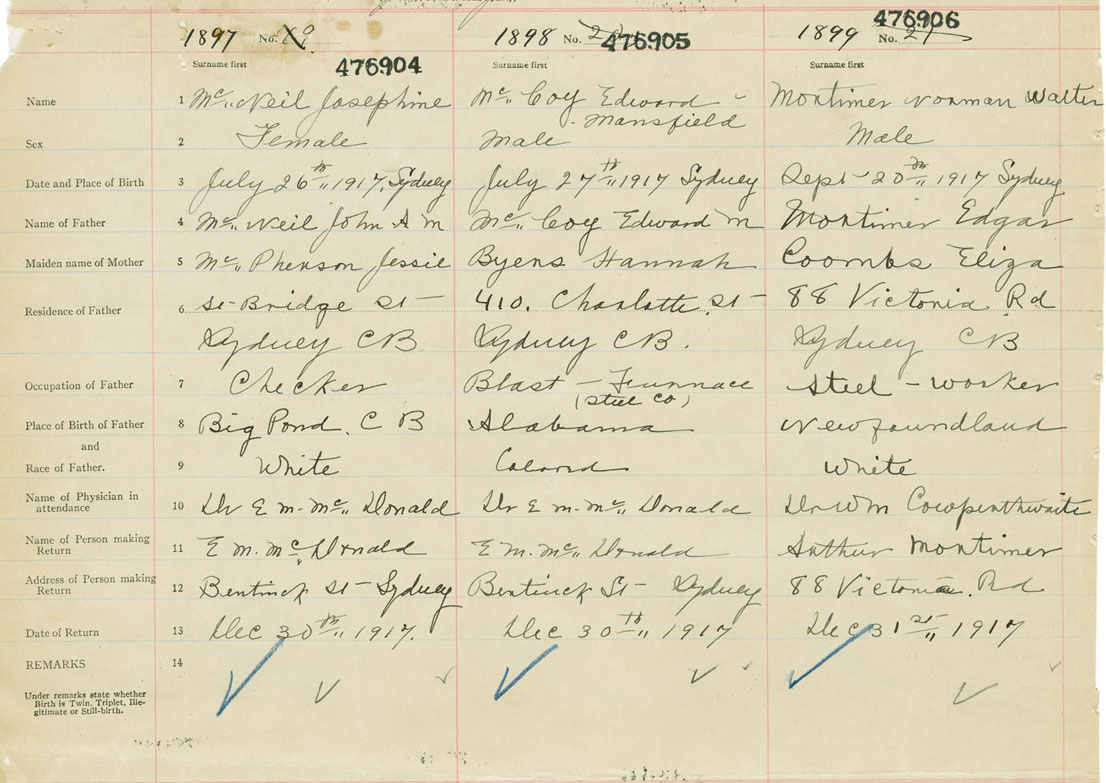 1897 No.
1898 No.
1899 No. 21
476904
476905
476906
Surname first
Surname first
Surname first
Name 1 Mc Neil Josephine
Mc Coy Edward -
Mansfield
Mortimer Norman Walter
Sex 2 Female
Male
Male
Date and Place of Birth 3 July 26th 1917, Sydney
July 27th 1917 Sydney
Sept 20th 1917 Sydney
Name of Father 4 Mc Neil John A M
Mc Coy Edward M
Mortimer Edgar
Maiden name of Mother 5 Mc Pherson Jessie
Byers Hannah
Coombs Eliza
Residence of Father 6 Bridge St
Sydney CB
410. Charlotte St
Sydney CB.
88 Victoria Rd
Sydney CB
Occupation of Father 7 Checker
Blast - Furnace
(Steel Co)
Steel - worker
Place of Birth of Father 8 Big Pond, C B
Alabama
Newfoundland
and
Race of Father. 9 White
Colored
White
Name of Physician in
attendance 10 Dr E M. Mc Donald
Dr E M. Mc Donald
Dr Wm Cowperthwaite
Name of Person making
Return 11 E M. Mc Donald
E M. Mc Donald
Arthur Mortimer
Address of Person making
Return 12 Bentinck St - Sydney
Bentinck St - Sydney
88 Victoria. Rd
Date of Return 13 Dec 30th 1917.
Dec 30th 1917
Dec 31st 1917
REMARKS 14
Under remarks state whether
Birth is Twin, Triplet, Ille-
gitimate or Still-birth.